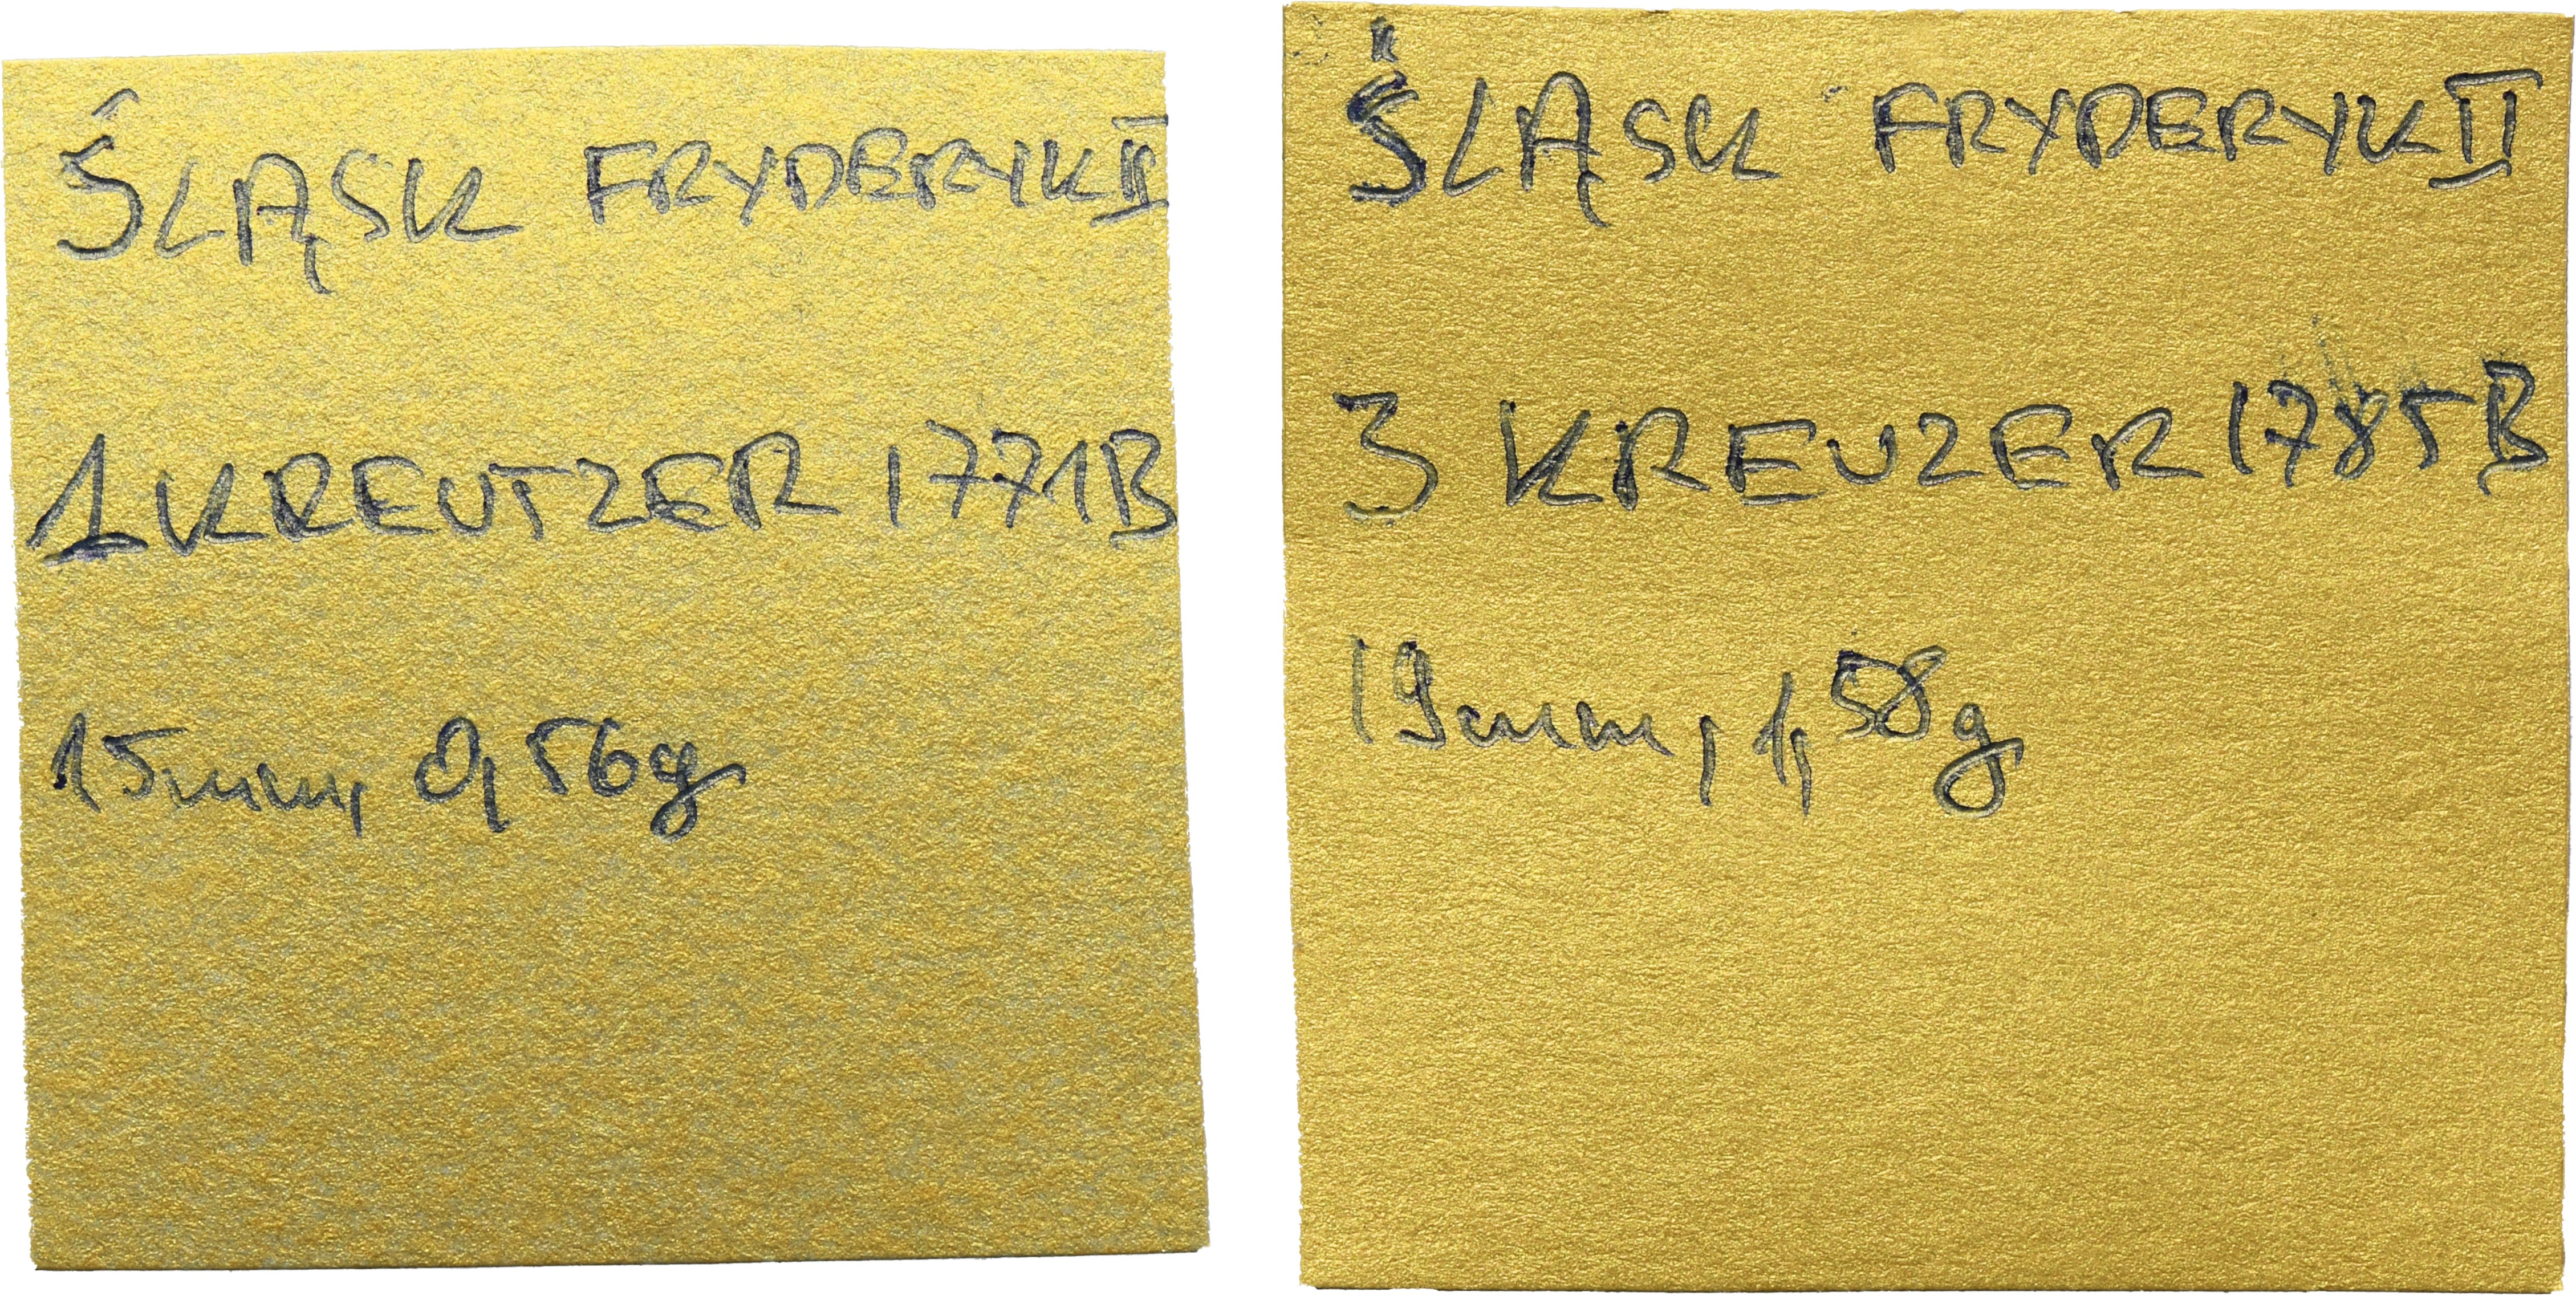 ŚLĄSK FRYDERYK II
1 KREUTZER 1771B
15mm, 0,56g
ŚLĄSK FRYDERYK II
3 KREUZER 1785B
19mm, 1,58g